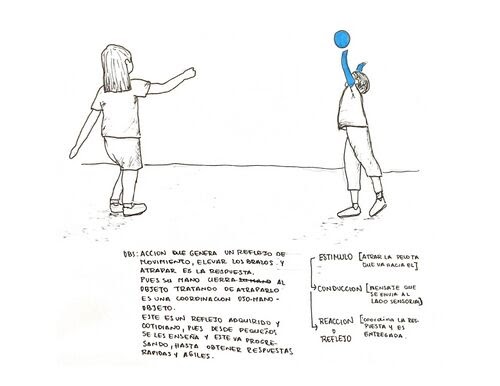 OBS: ACCION QUE GENERA UN REFLEJO DE
MOVIMIENTO, ELEVAR LOS BRAZOS Y
ATRAPAR ES LA RESPUESTA.
PUES SU MANO CIERRA SU MANO AL
OBJETO TRATANDO DE ATRAPARLO
ES UNA COORDINACION OJO-MANO-
OBJETO.
ESTE ES UN REFLEJO ADQUIRIDO Y
COTIDIANO, PUES DESDE PEQUEÑOS
SE LES ENSEÑA Y ESTE VA PROGRE-
SANDO, HASTA OBTENER RESPUESTAS
RAPIDAS Y AGILES.
ESTIMULO [ATRAR LA PELOTA
QUE VA HACIA EL]
CONDUCCION [MENSAJE QUE
SE ENVIA AL
LADO SENSORIAL]
REACCION [COORDINA LA RES-
O PUESTA Y ES
REFLEJO ENTREGADA.